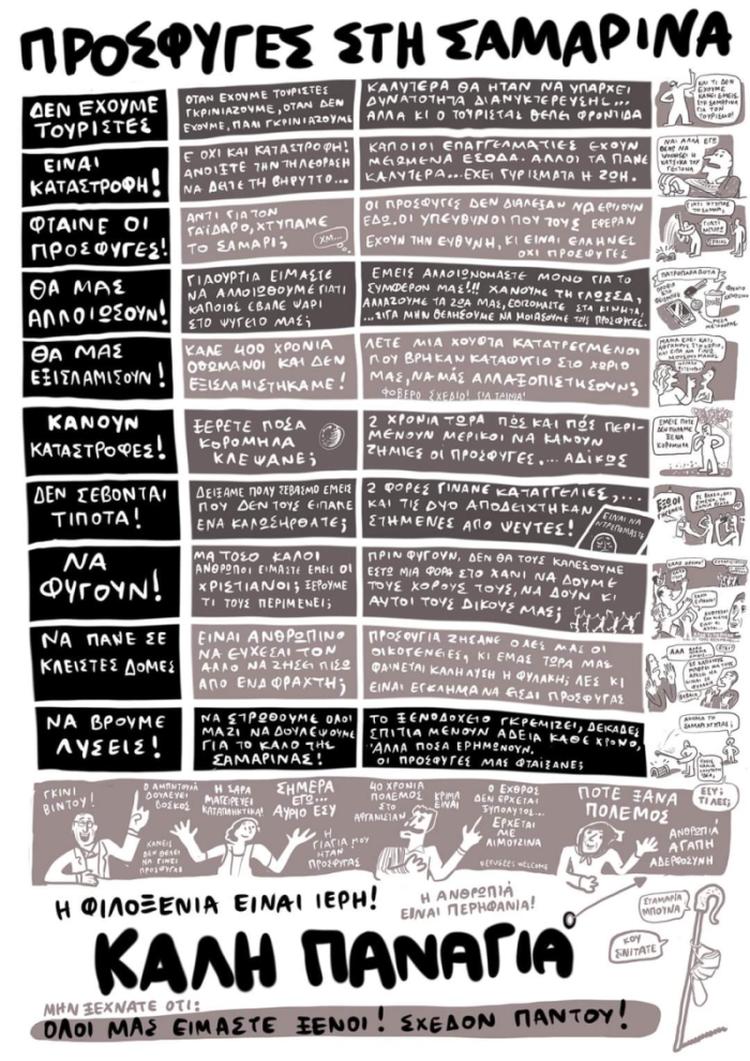 ΠΡΟΣΦΥΓΕΣ ΣΤΗ ΣΑΜΑΡΙΝΑ
ΔΕΝ ΕΧΟΥΜΕ
ΤΟΥΡΙΣΤΕΣ
ΟΤΑΝ ΕΧΟΥΜΕ ΤΟΥΡΙΣΤΕΣ
ΓΚΡΙΝΙΑΖΟΥΜΕ, ΟΤΑΝ ΔΕΝ
ΕΧΟΥΜΕ, ΠΑΛΙ ΓΚΡΙΝΙΑΖΟΥΜΕ
ΚΑΛΥΤΕΡΑ ΘΑ ΗΤΑΝ ΝΑ ΥΠΑΡΧΕΙ
ΔΥΝΑΤΟΤΗΤΑ ΔΙΑΝΥΚΤΕΡΕΥΣΗΣ...
ΑΛΛΑ ΚΙ Ο ΤΟΥΡΙΣΤΑΣ ΘΕΛΕΙ ΦΡΟΝΤΙΔΑ
ΚΑΙ ΤΙ ΔΕΝ
ΕΧΟΥΜΕ
ΚΑΝΕΙ ΕΜΕΙΣ
ΣΤΗ ΣΑΜΑΡΙΝΑ
ΓΙΑ ΤΟΝ
ΤΟΥΡΙΣΜΟ!
ΕΙΝΑΙ
ΚΑΤΑΣΤΡΟΦΗ!
Ε ΟΧΙ ΚΑΙ ΚΑΤΑΣΤΡΟΦΗ!
ΑΝΟΙΞΤΕ ΤΗΝ ΤΗΛΕΟΡΑΣΗ
ΝΑ ΔΕΙΤΕ ΤΗ ΒΗΡΥΤΤΟ...
ΚΑΠΟΙΟΙ ΕΠΑΓΓΕΛΜΑΤΙΕΣ ΕΧΟΥΝ
ΜΕΙΩΜΕΝΑ ΕΣΟΔΑ. ΑΛΛΟΙ ΤΑ ΠΑΝΕ
ΚΑΛΥΤΕΡΑ...ΕΧΕΙ ΓΥΡΙΣΜΑΤΑ Η ΖΩΗ.
ΝΑΙ ΑΛΛΑ ΕΓΩ
ΘΕΛΩ ΝΑ
ΨΟΦΗΣΕΙ Η
ΚΑΤΣΙΚΑ ΤΟΥ
ΓΕΙΤΟΝΑ
ΦΤΑΙΝΕ ΟΙ
ΠΡΟΣΦΥΓΕΣ!
ΑΝΤΙ ΓΙΑ ΤΟΝ
ΓΑΪΔΑΡΟ, ΧΤΥΠΑΜΕ
ΤΟ ΣΑΜΑΡΙ;
ΧΜ...
ΟΙ ΠΡΟΣΦΥΓΕΣ ΔΕΝ ΔΙΑΛΕΞΑΝ ΝΑ ΕΡΘΟΥΝ
ΕΔΩ. ΟΙ ΥΠΕΥΘΥΝΟΙ ΠΟΥ ΤΟΥΣ ΕΦΕΡΑΝ
ΕΧΟΥΝ ΤΗΝ ΕΥΘΥΝΗ, ΚΙ ΕΙΝΑΙ ΕΛΛΗΝΕΣ
ΟΧΙ ΠΡΟΣΦΥΓΕΣ
ΓΙΑΤΙ ΧΤΥΠΑΣ
ΤΟ ΣΑΜΑΡΙ;
ΓΙΑΤΙ
ΜΠΟΡΩ
ΘΑ ΜΑΣ
ΑΛΛΟΙΩΣΟΥΝ!
ΓΙΑΟΥΡΤΙΑ ΕΙΜΑΣΤΕ
ΝΑ ΑΛΛΟΙΩΘΟΥΜΕ ΓΙΑΤΙ
ΚΑΠΟΙΟΣ ΕΒΑΛΕ ΨΑΡΙ
ΣΤΟ ΨΥΓΕΙΟ ΜΑΣ;
ΕΜΕΙΣ ΑΛΛΟΙΩΝΟΜΑΣΤΕ ΜΟΝΟ ΓΙΑ ΤΟ
ΣΥΜΦΕΡΟΝ ΜΑΣ!!! ΧΑΝΟΥΜΕ ΤΗ ΓΛΩΣΣΑ,
ΑΛΛΑΖΟΥΜΕ ΤΑ ΖΩΑ ΜΑΣ, ΕΘΙΖΟΜΑΣΤΕ ΣΤΑ ΚΙΝΗΤΑ,
...ΣΙΓΑ ΜΗΝ ΘΕΛΗΣΟΥΜΕ ΝΑ ΜΟΙΑΣΟΥΜΕ ΤΟΥΣ ΠΡΟΣΦΥΓΕΣ.
ΠΑΤΡΟΠΑΡΑΔΟΤΑ
ΘΑ ΜΑΣ
ΕΞΙΣΛΑΜΙΣΟΥΝ!
ΚΑΛΕ 400 ΧΡΟΝΙΑ
ΟΘΩΜΑΝΟΙ ΚΑΙ ΔΕΝ
ΕΞΙΣΛΑΜΙΣΤΗΚΑΜΕ!
ΛΕΤΕ ΜΙΑ ΧΟΥΦΤΑ ΚΑΤΑΤΡΕΓΜΕΝΟΙ
ΠΟΥ ΒΡΗΚΑΝ ΚΑΤΑΦΥΓΙΟ ΣΤΟ ΧΩΡΙΟ
ΜΑΣ, ΝΑ ΜΑΣ ΑΛΛΑΞΟΠΙΣΤΗΣΟΥΝ;
ΦΟΒΕΡΟ ΣΧΕΔΙΟ! ΓΙΑ ΤΑΙΝΙΑ!
ΚΑΝΟΥΝ
ΚΑΤΑΣΤΡΟΦΕΣ!
ΞΕΡΕΤΕ ΠΟΣΑ
ΚΟΡΟΜΗΛΑ
ΚΛΕΨΑΝΕ;
2 ΧΡΟΝΙΑ ΤΩΡΑ ΠΩΣ ΚΑΙ ΠΩΣ ΠΕΡΙ-
ΜΕΝΟΥΝ ΜΕΡΙΚΟΙ ΝΑ ΚΑΝΟΥΝ
ΖΗΜΙΕΣ ΟΙ ΠΡΟΣΦΥΓΕΣ,... ΑΔΙΚΩΣ
ΕΜΕΙΣ ΠΟΤΕ
ΔΕΝ ΠΗΡΑΜΕ
ΞΕΝΑ
ΚΟΡΟΜΗΛΑ
ΔΕΝ ΣΕΒΟΝΤΑΙ
ΤΙΠΟΤΑ!
ΔΕΙΞΑΜΕ ΠΟΛΥ ΣΕΒΑΣΜΟ ΕΜΕΙΣ
ΠΟΥ ΔΕΝ ΤΟΥΣ ΕΙΠΑΜΕ
ΕΝΑ ΚΑΛΩΣΗΡΘΑΤΕ;
2 ΦΟΡΕΣ ΓΙΝΑΝΕ ΚΑΤΑΓΓΕΛΙΕΣ,...
ΚΑΙ ΤΙΣ ΔΥΟ ΑΠΟΔΕΙΧΤΗΚΑΝ
ΣΤΗΜΕΝΕΣ ΑΠΟ ΨΕΥΤΕΣ!
ΕΙΝΑΙ ΝΑ
ΝΤΡΕΠΟΜΑΣΤΕ
ΝΑ
ΦΥΓΟΥΝ!
ΜΑ ΤΟΣΟ ΚΑΛΟΙ
ΑΝΘΡΩΠΟΙ ΕΙΜΑΣΤΕ ΕΜΕΙΣ ΟΙ
ΧΡΙΣΤΙΑΝΟΙ; ΞΕΡΟΥΜΕ
ΤΙ ΤΟΥΣ ΠΕΡΙΜΕΝΕΙ;
ΠΡΙΝ ΦΥΓΟΥΝ, ΔΕΝ ΘΑ ΤΟΥΣ ΚΑΛΕΣΟΥΜΕ
ΕΣΤΩ ΜΙΑ ΦΟΡΑ ΣΤΟ ΧΑΝΙ ΝΑ ΔΟΥΜΕ
ΤΟΥΣ ΧΟΡΟΥΣ ΤΟΥΣ, ΝΑ ΔΟΥΝ ΚΙ
ΑΥΤΟΙ ΤΟΥΣ ΔΙΚΟΥΣ ΜΑΣ;
ΝΑ ΠΑΝΕ ΣΕ
ΚΛΕΙΣΤΕΣ ΔΟΜΕΣ
ΕΙΝΑΙ ΑΝΘΡΩΠΙΝΟ
ΝΑ ΕΥΧΕΣΑΙ ΤΟΝ
ΑΛΛΟ ΝΑ ΖΗΣΕΙ ΠΙΣΩ
ΑΠΟ ΕΝΑ ΦΡΑΧΤΗ;
ΠΡΟΣΦΥΓΙΑ ΖΗΣΑΝΕ ΟΛΕΣ ΜΑΣ ΟΙ
ΟΙΚΟΓΕΝΕΙΕΣ, ΚΙ ΕΜΑΣ ΤΩΡΑ ΜΑΣ
ΦΑΙΝΕΤΑΙ ΚΑΛΗ ΛΥΣΗ Η ΦΥΛΑΚΗ; ΛΕΣ ΚΙ
ΕΙΝΑΙ ΕΓΚΛΗΜΑ ΝΑ ΕΙΣΑΙ ΠΡΟΣΦΥΓΑΣ
ΝΑ ΒΡΟΥΜΕ
ΛΥΣΕΙΣ!
ΝΑ ΣΤΡΩΘΟΥΜΕ ΟΛΟΙ
ΜΑΖΙ ΝΑ ΔΟΥΛΕΨΟΥΜΕ
ΓΙΑ ΤΟ ΚΑΛΟ ΤΗΣ
ΣΑΜΑΡΙΝΑΣ!
ΤΟ ΞΕΝΟΔΟΧΕΙΟ ΓΚΡΕΜΙΖΕΙ, ΔΕΚΑΔΕΣ
ΣΠΙΤΙΑ ΜΕΝΟΥΝ ΑΔΕΙΑ ΚΑΘΕ ΧΡΟΝΟ,
ΑΛΛΑ ΠΟΣΑ ΕΡΗΜΩΝΟΥΝ.
ΟΙ ΠΡΟΣΦΥΓΕΣ ΜΑΣ ΦΤΑΙΞΑΝΕ;
ΓΚΙΝΙ
ΒΙΝΤΟΥ!
Ο ΑΜΠΝΤΟΥΛΑ
ΔΟΥΛΕΥΕΙ
ΒΟΣΚΟΣ
ΚΑΝΕΙΣ
ΔΕΝ ΘΕΛΕΙ
ΝΑ ΓΙΝΕΙ
ΠΡΟΣΦΥΓΑΣ
Η ΣΑΡΑ
ΜΑΓΕΙΡΕΥΕΙ
ΚΑΤΑΠΛΗΚΤΙΚΑ!
ΣΗΜΕΡΑ
ΕΓΩ...
ΑΥΡΙΟ ΕΣΥ
Η
ΓΙΑΓΙΑ ΜΟΥ
ΗΤΑΝ
ΠΡΟΣΦΥΓΑΣ
40 ΧΡΟΝΙΑ
ΠΟΛΕΜΟΣ
ΣΤΟ
ΑΦΓΑΝΙΣΤΑΝ
ΚΡΙΜΑ
ΕΙΝΑΙ
Ο ΕΧΘΡΟΣ
ΔΕΝ ΕΡΧΕΤΑΙ
ΞΥΠΟΛΥΤΟΣ...
ΕΡΧΕΤΑΙ
ΜΕ
ΛΙΜΟΥΖΙΝΑ
REFUGEES WELCOME
ΠΟΤΕ ΞΑΝΑ
ΠΟΛΕΜΟΣ
ΑΝΘΡΩΠΙΑ
ΑΓΑΠΗ
ΑΔΕΡΦΟΣΥΝΗ
ΕΣΥ;
ΤΙ ΛΕΣ;
Η ΦΙΛΟΞΕΝΙΑ ΕΙΝΑΙ ΙΕΡΗ!
Η ΑΝΘΡΩΠΙΑ
ΕΙΝΑΙ ΠΕΡΗΦΑΝΙΑ!
ΣΤΑΜΑΡΙΑ
ΜΠΟΥΝΑ
ΚΟΥ
ΣΝΙΤΑΤΕ
ΚΑΛΗ ΠΑΝΑΓΙΑ
ΜΗΝ ΞΕΧΝΑΤΕ ΟΤΙ:
ΟΛΟΙ ΜΑΣ ΕΙΜΑΣΤΕ ΞΕΝΟΙ! ΣΧΕΔΟΝ ΠΑΝΤΟΥ!